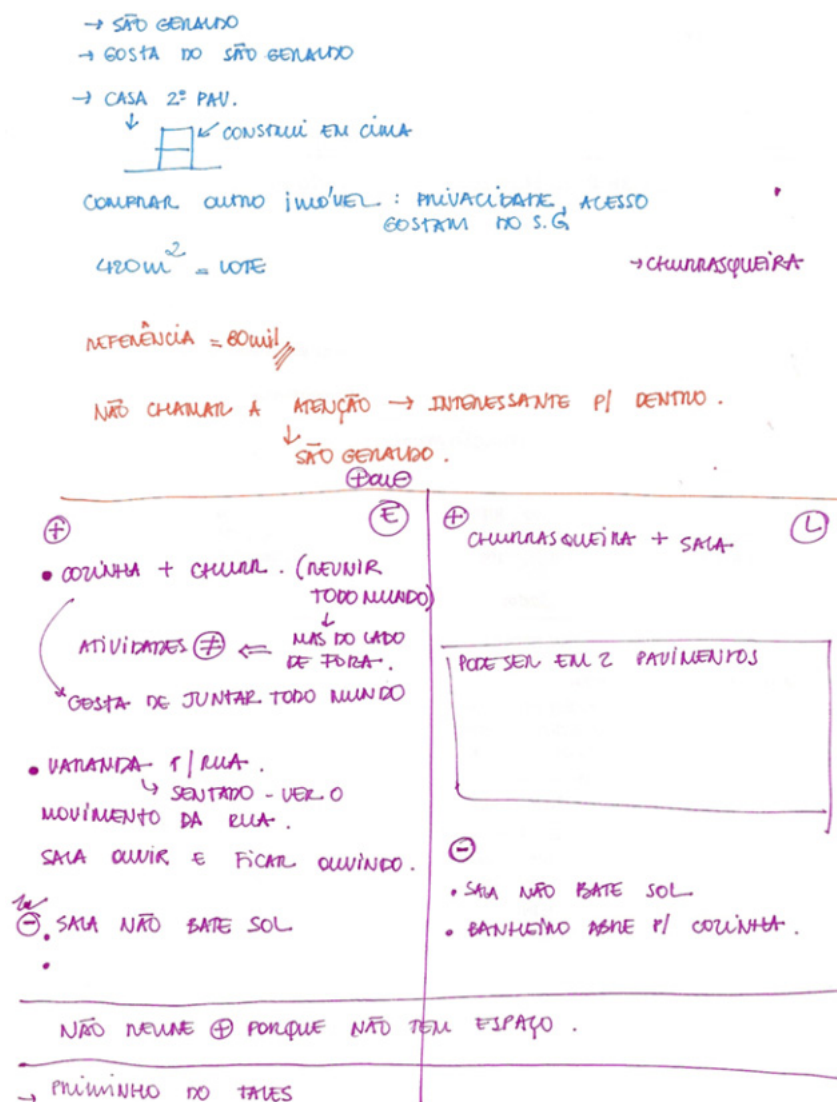 → SÃO GERALDO
→ GOSTA DO SÃO GERALDO
→ CASA 2º PAV.
CONSTRUI EM CIMA
COMPRAR OUTRO IMÓVEL : PRIVACIDADE, ACESSO
GOSTAM DO S.G
420m² = LOTE
→ CHURRASQUEIRA
REFERÊNCIA = 80mil
NÃO CHAMAR A ATENÇÃO → INTERESSANTE P/ DENTRO.
SÃO GERALDO.
+ OU -
+
E
• COZINHA + CHURR. (REUNIR
TODO MUNDO)
MAS DO LADO
DE FORA.
ATIVIDADES ≠ ⇐
GOSTA DE JUNTAR TODO MUNDO
• VARANDA P/ RUA.
SENTADO - VER O
MOVIMENTO DA RUA.
SALA OUVIR E FICAR OUVINDO.
-
. SALA NÃO BATE SOL
•
+
L
CHURRASQUEIRA + SALA
PODE SER EM 2 PAVIMENTOS
-
• SALA NÃO BATE SOL
• BANHEIRO ABRE P/ COZINHA.
NÃO REUNE + PORQUE NÃO TEM ESPAÇO.
→ PRIMINHO DO TALES